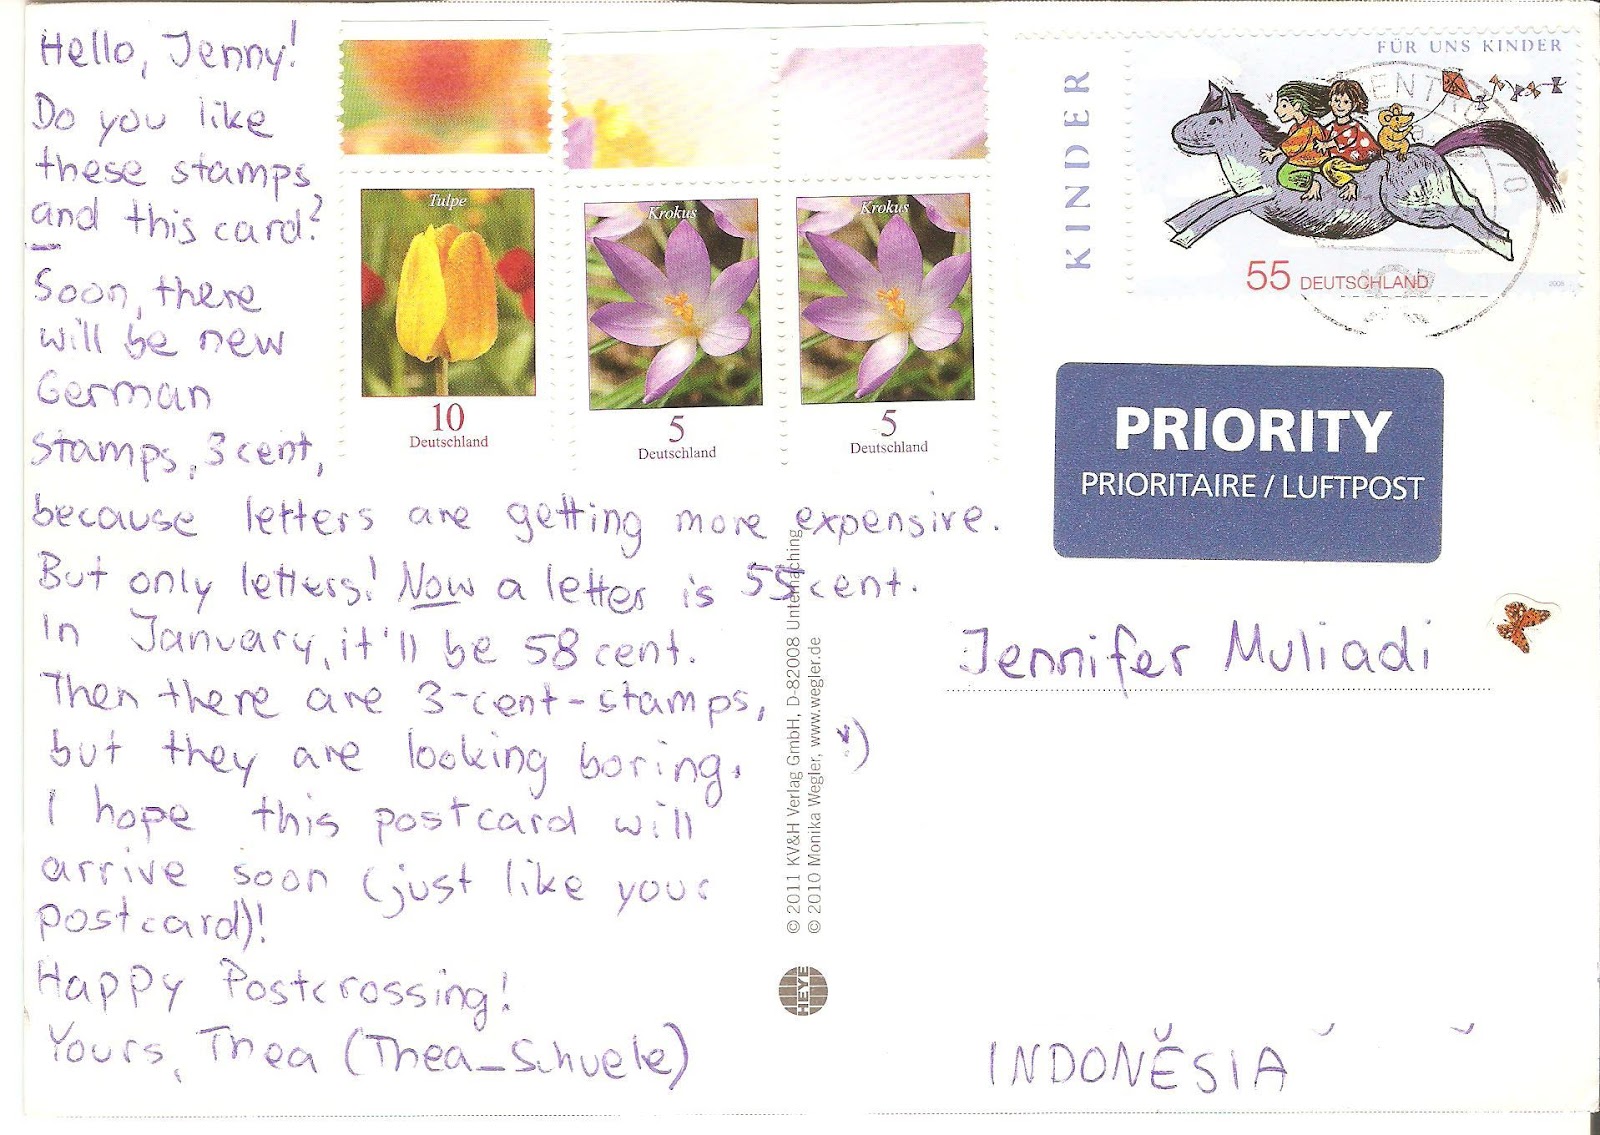 Hello, Jenny!
Do you like
these stamps
and this card?
Soon, there
will be new
German
stamps, 3 cent,
because letters are getting more expensive.
But only letters! Now a letter is 55 cent.
In January, it'll be 58 cent.
Then there are 3-cent-stamps,
but they are looking boring.
I hope this postcard will
arrive soon (just like your
postcard)!
Happy Postcrossing!
Yours, Thea (Thea_Schuele)
Tulpe
10
Deutschland
Krokus
5
Deutschland
Krokus
5
Deutschland
KINDER
FÜR UNS KINDER
55 DEUTSCHLAND
PRIORITY
PRIORITAIRE / LUFTPOST
Jennifer Muliadi
INDONESIA
© 2011 KV&H Verlag GmbH, D-82008 Unterhaching
© 2010 Monika Wegler, www.wegler.de
HEYE